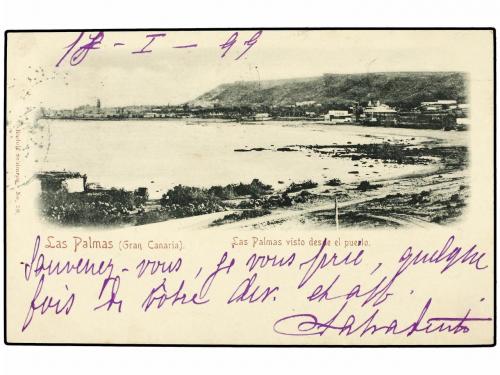 17 - I - 99
Las Palmas (Gran Canaria).
Las Palmas visto desde el puerto.
Souvenez-vous, je vous prie, quelque
fois de vôtre dev. et aff.